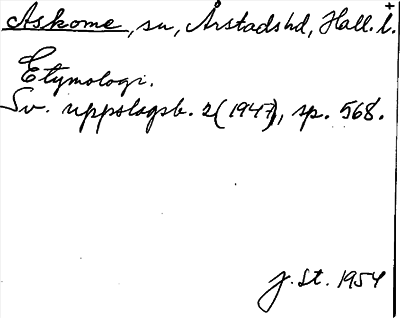 Askome, sn, Årstads hd, Hall. l.
Etymologi.
Sv. uppslagsb. 2 (1947), sp. 568.
J. St. 1954